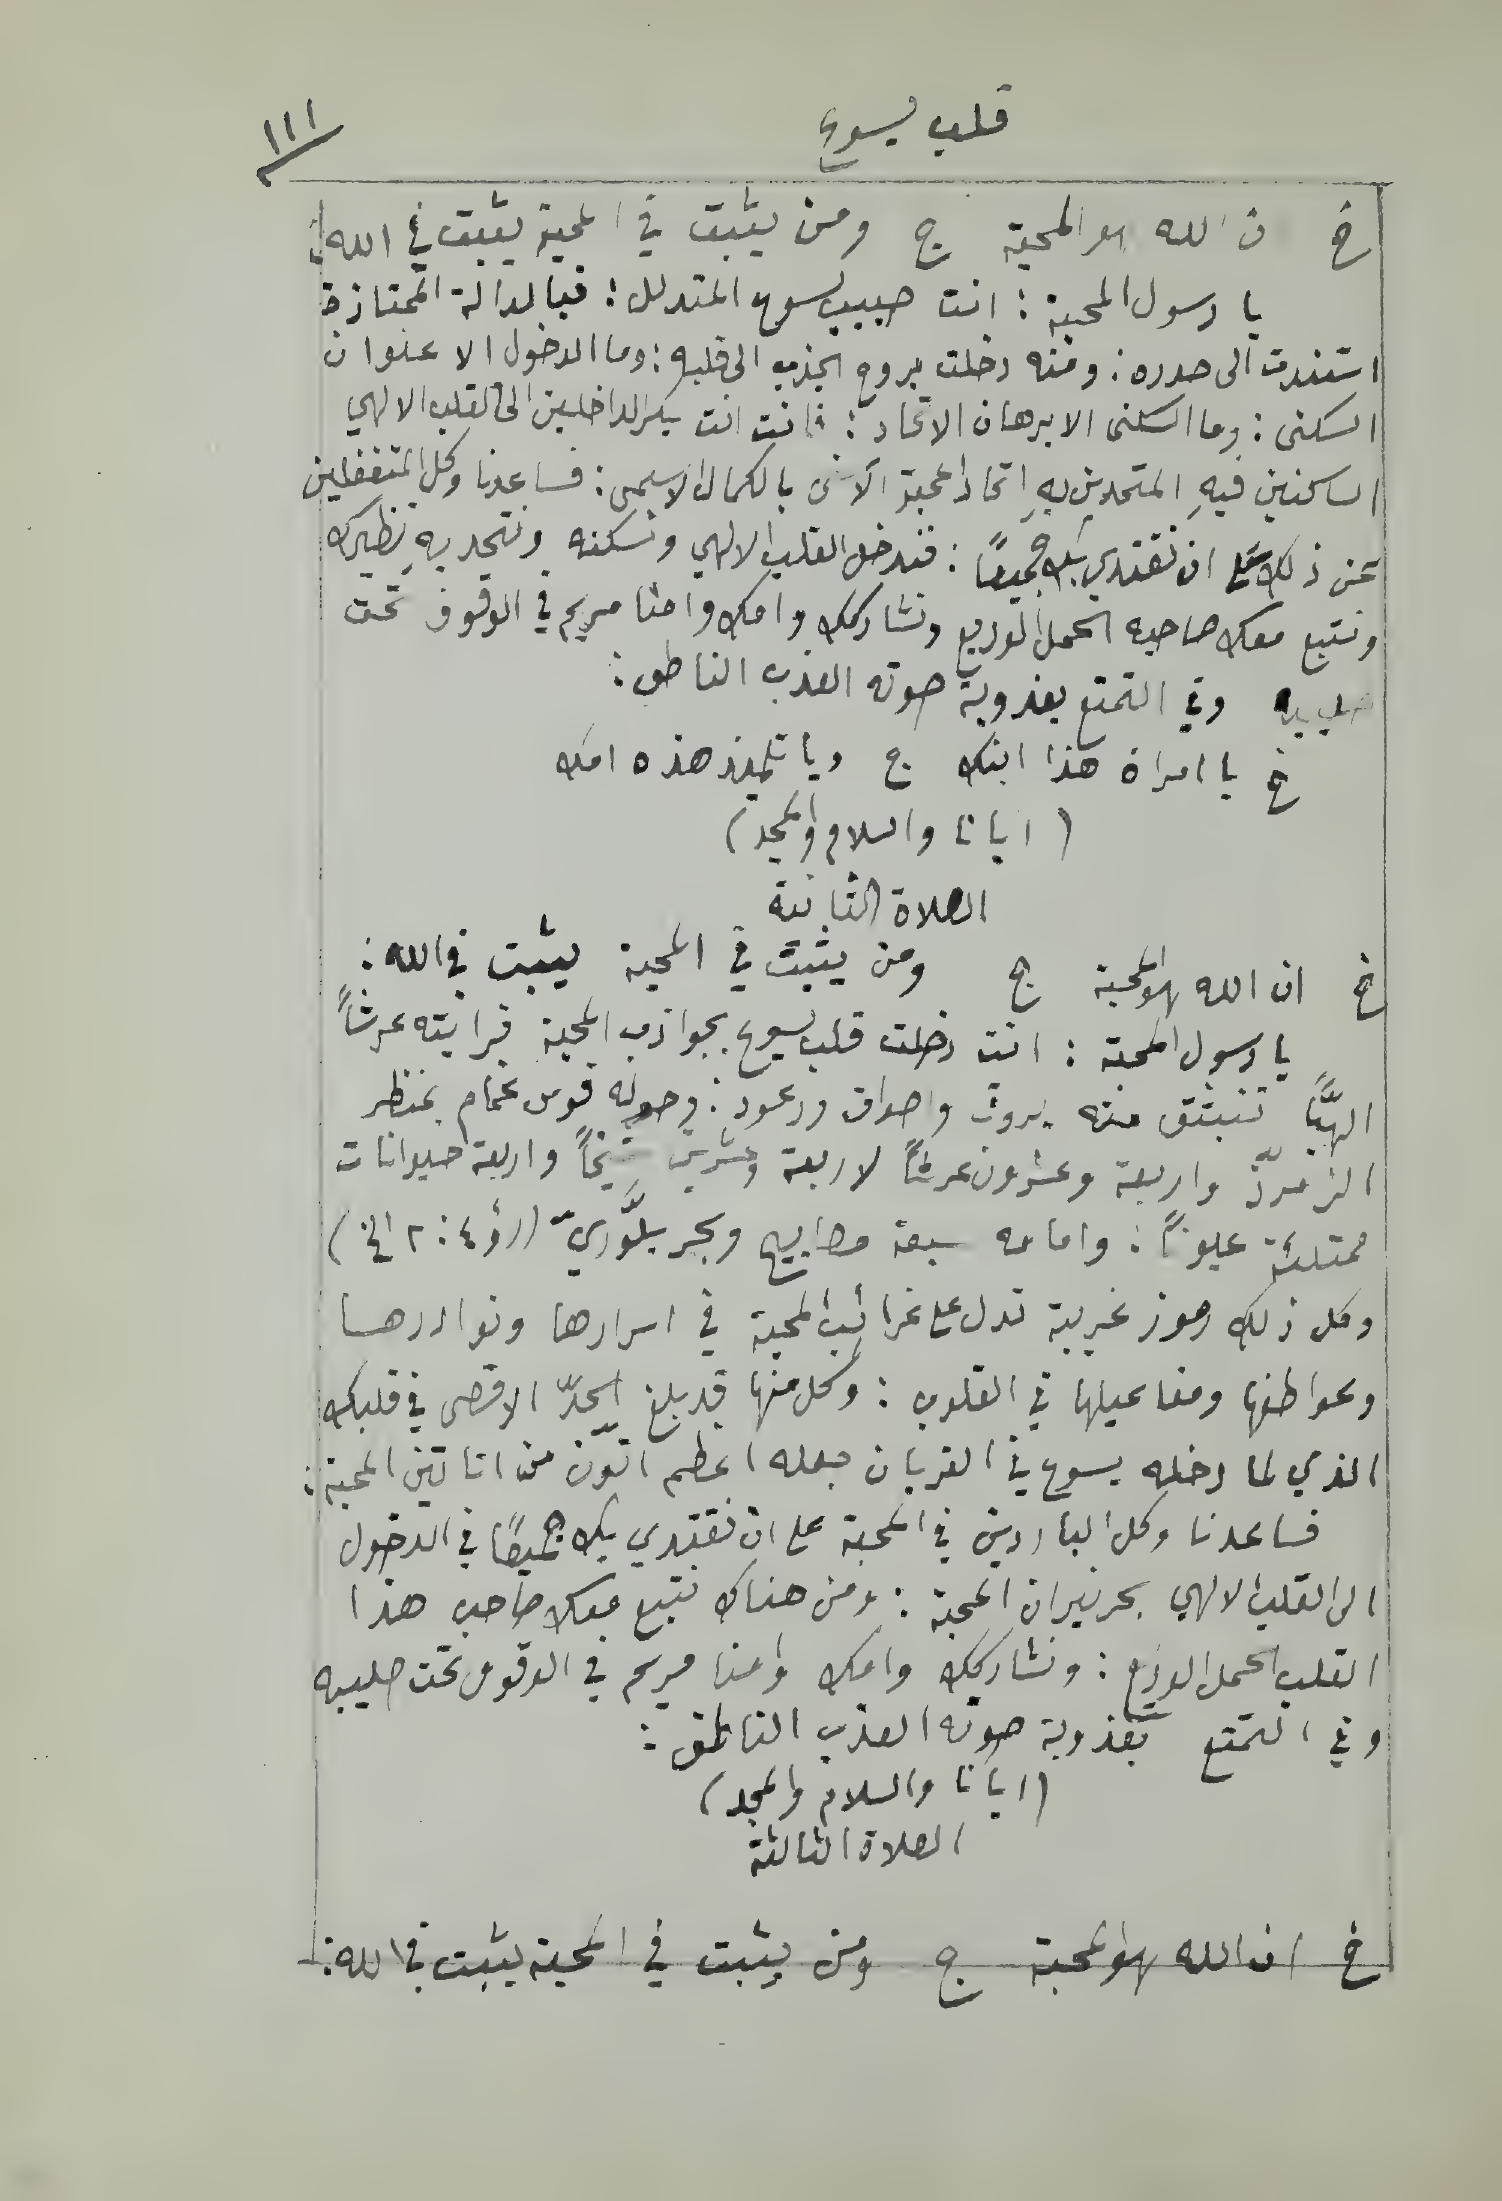 قلب يسوع
١١١
خ ان الله هو المحبة ج ومن يثبت في المحبة يثبت في الله:
يا رسول المحبة: انت حبيب يسوع المتدلل: فبالدالة الممتازة
استندت الى صدره: ومنه دخلت بروح الجذب الى قلبه: وما الدخول الا عنوان
السكنى: وما السكنى الا برهان الاتحاد: فانت انت بكر الداخلين الى القلب الالهي
الساكنين فيهِ المتحدين بهِ اتحاد المحبة بالكمال الاسمى: فساعدنا وكل المتغفلين
عن ذلك على ان نقتدي بك جميعًا: فندخل القلب الالهي ونسكنه ونتحد بهِ نظيرك
ونتبع معك صاحبه الحمل الوديع ونشاركك وامك وامنا مريم في الوقوف تحت
صليبه وفي التمتع بعذوبة صوته العذب الناطق:
خ يا امراة هذا ابنك ج ويا تلميذ هذه امك
(ابانا والسلام والمجد)
الصلاة الثانية
خ ان الله هو المحبة ج ومن يثبت في المحبة يثبت في الله:
يا رسول المحبة: انت دخلت قلب يسوع بجواذب المحبة فرايته عرشاً
الهيًّا تنبثق منه بروق واصوات ورعود: وحوله قوس غمام بمنظر
الزمرّذ واربعة وعشرون عرشاً لاربعة وعشرين شيخاً واربعة حيوانات
ممتلئة عيوناً: وامامه سبعة مصابيح وبحر بلَّوريّ (رؤ ٤: ٢ الخ)
وكل ذلك رموز غريبة تدل على غرائب المحبة في اسرارها ونوادرها
وعواطفها ومفاعيلها في القلوب: وكل منها قد بلغ الحدّ الاقصى في قلبك
الذي لما دخله يسوع في القربان جعله اعظم اتّون من اتاتين المحبة:
فساعدنا وكل الباردين في المحبة على ان نقتدي بك جميعًا في الدخول
الى القلب الالهي بحر نيران المحبة: ومن هناك نتبع معك صاحب هذا
القلب الحمل الوديع: ونشاركك وامك وامنا مريم في الوقوف تحت صليبه
وفي التمتع بعذوبة صوته العذب الناطق:
(ابانا والسلام والمجد)
الصلاة الثالثة
خ ان الله هو المحبة ج ومن يثبت في المحبة يثبت في الله: